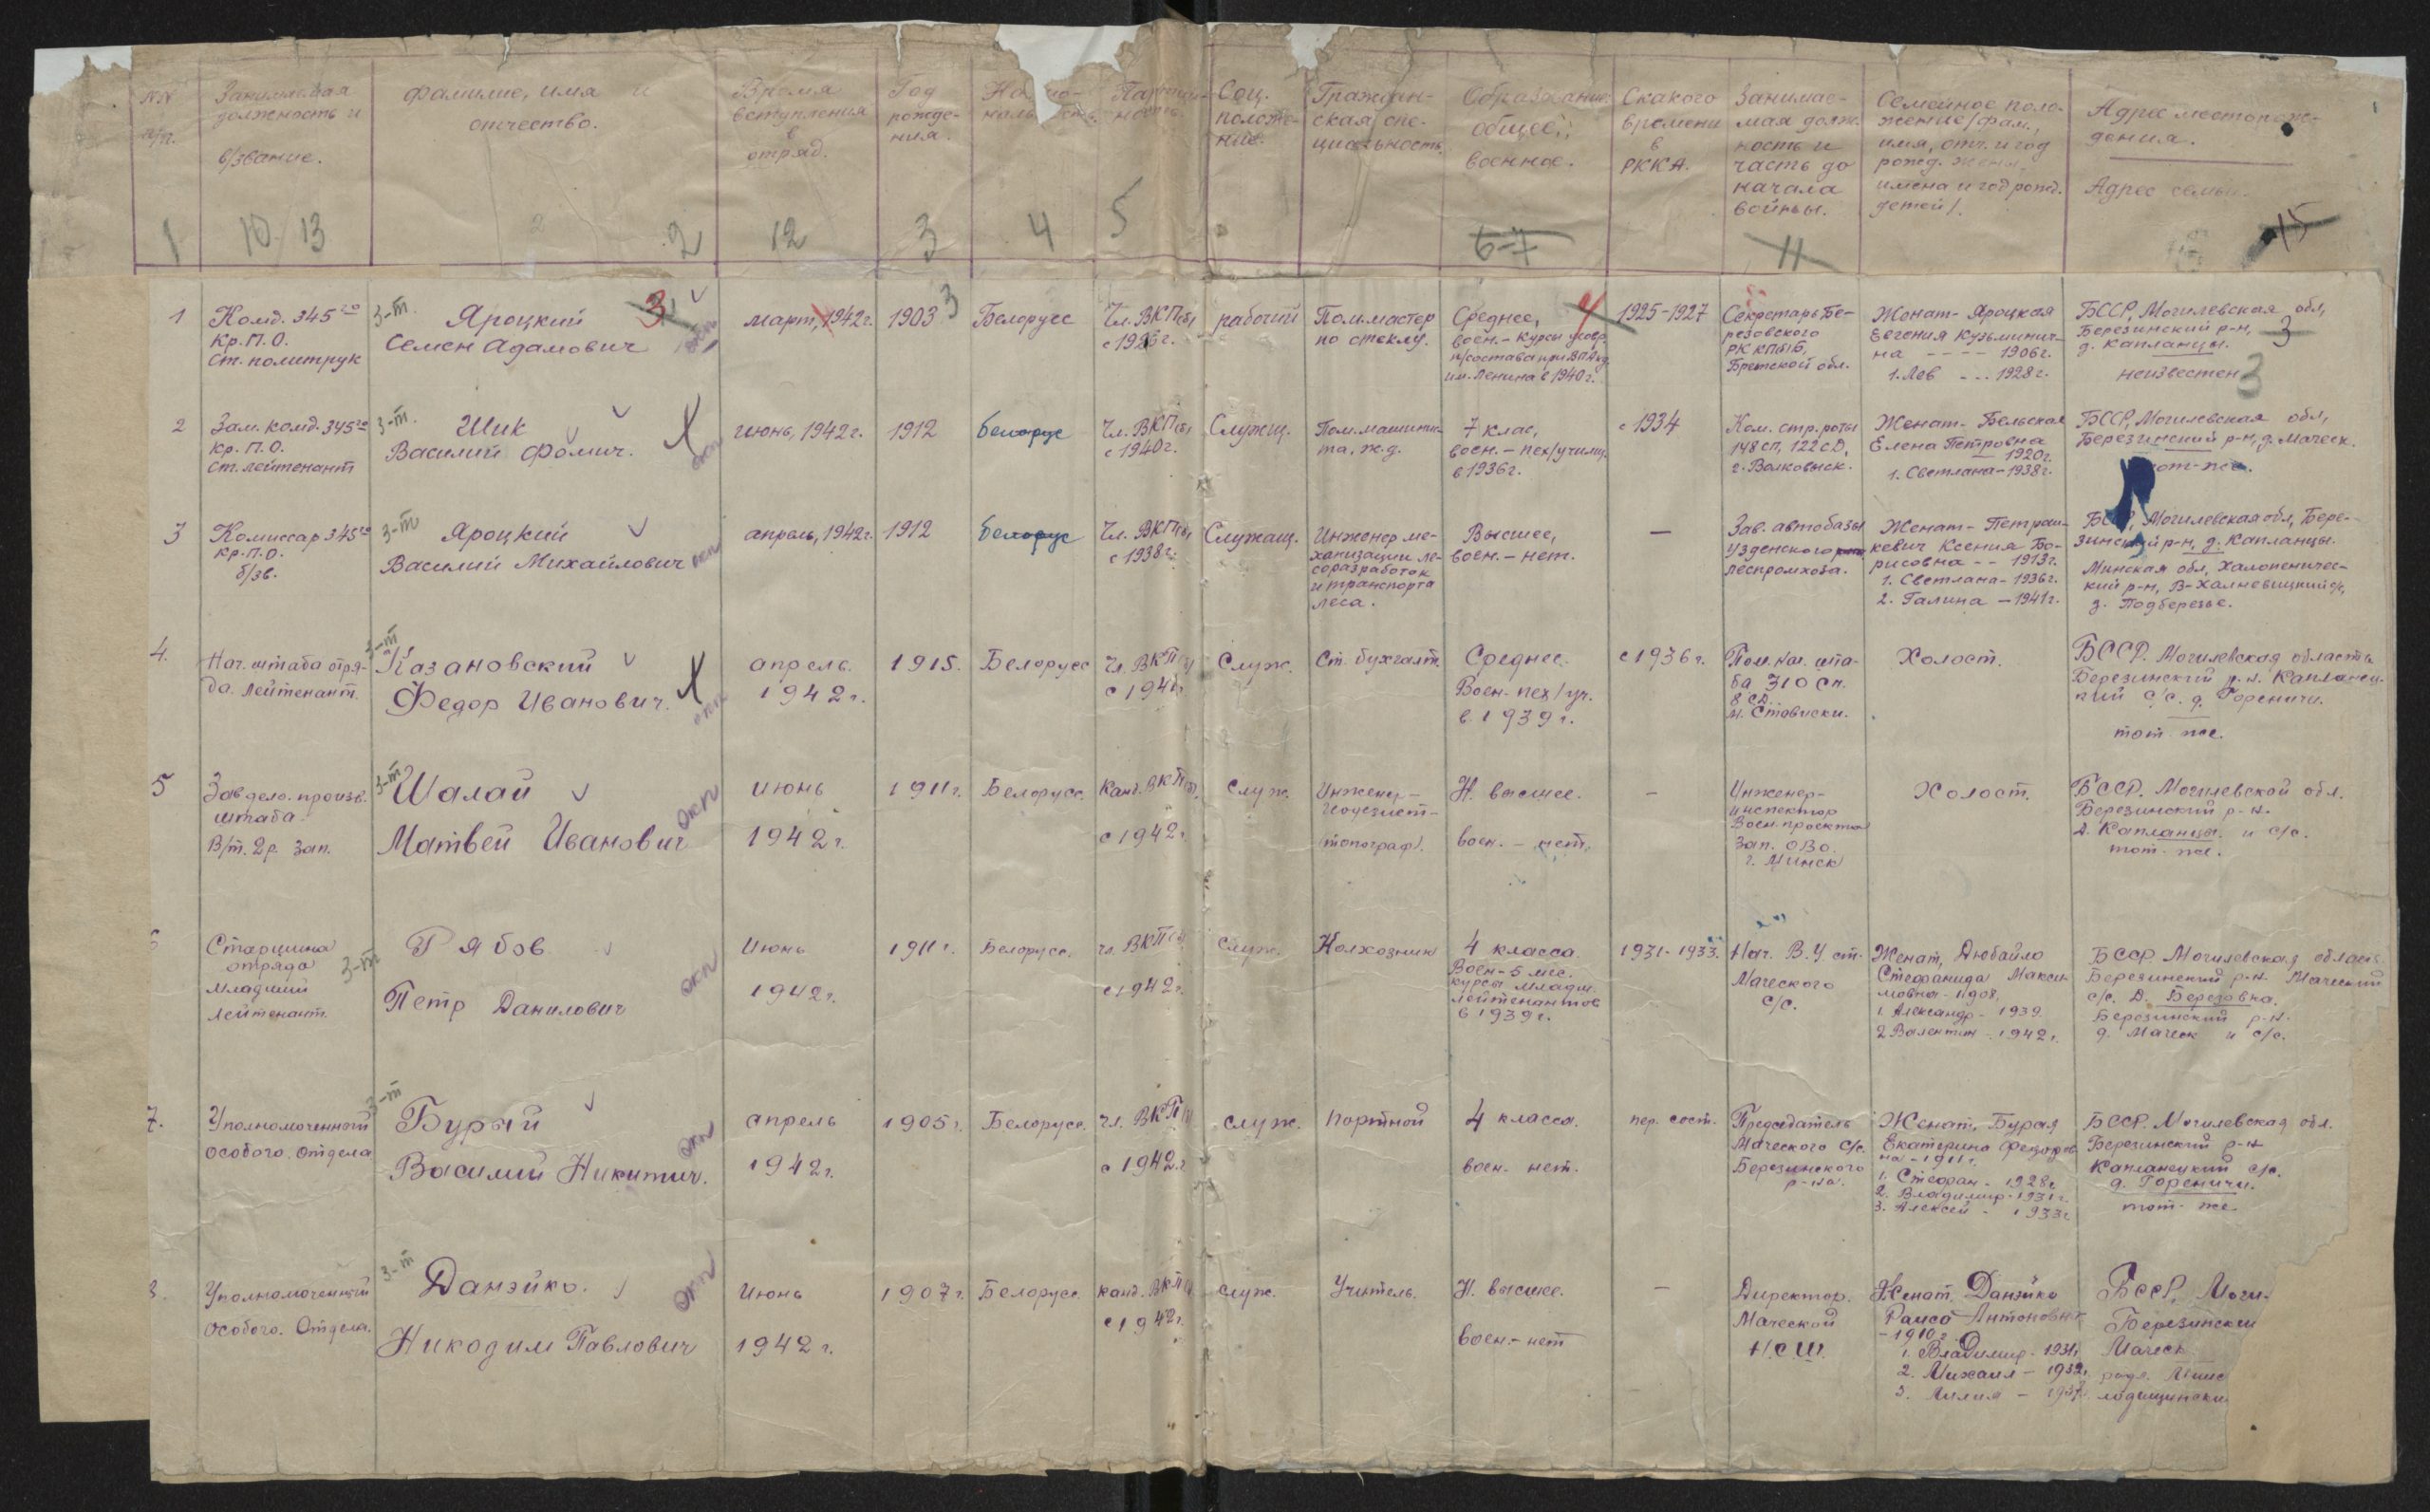 NN
п/п.
Занимаемая
должность и
в/звание.
Фамилие, имя и
отчество.
Время
вступления
в
отряд.
Год
рожде-
ния.
Соц.
положе-
ние.
Граждан-
ская спе-
циальность.
Образование:
общее,
военное.
С какого
времени
в
РККА.
Занимае-
мая долж-
ность и
часть до
начала
войны.
Семейное поло-
жение /фам.,
имя, отч. и год
рожд. жены,
имена и год рожд.
детей/.
Адрес местонахож-
дения.
Адрес семьи.
1 10/13 2 12 3 4 5 6-7 11 15
1
Комд. 345го
Кр. П. О.
Ст. политрук
3-т.
Яроцкий
Семен Адамович
март, 1942 г.
1903
Белорусс
Чл. ВКП(б)
рабочий
Пом. мастер
по стеклу.
Среднее,
воен. - курсы усов.
им. Ленина в 1940 г.
1925-1927
Секретарь Бе-
резовского
РК КП(б)Б,
Брестской обл.
Женат - Яроцкая
Евгения Кузьминич-
на - - - - 1906 г.
1. Лев - - - 1928 г.
БССР, Могилевская обл,
Березинский р-н,
д. Капланцы.
неизвестен
3
2
Зам. комд. 345го
Кр. П. О.
Ст. лейтенант
3-т.
Шик
Василий Фомич.
июнь, 1942 г.
1912
белорус
Чл. ВКП(б)
с 1940 г.
Служащ.
Пом. машинис-
та, ж.д.
7 клас,
воен. - пех/училищ.
в 1936 г.
с 1934
Ком. стр. роты
148 сп, 122 сд,
г. Волковыск.
Женат - Бельская
Елена Петровна
1920 г.
1. Светлана - 1938 г.
БССР, Могилевская обл,
Березинский р-н, д. Маческ.
тот-же.
3
Комиссар 345го
Кр. П. О.
б/зв.
3-т
Яроцкий
Василий Михайлович
апрель, 1942 г.
1912
белорус
Чл. ВКП(б)
с 1938 г.
Служащ.
Инженер ме-
ханизации ле-
соразработок
и транспорта
леса.
Высшее,
воен. - нет.
—
Зав. автобазы
Узденского
леспромхоза.
Женат - Петраш-
кевич Ксения Бо-
рисовна - - 1913 г.
1. Светлана - 1936 г.
2. Галина - 1941 г.
БССР, Могилевская обл, Бере-
зинский р-н, д. Капланцы.
Минская обл, Халопеничес-
кий р-н,
д. Подберезье.
4.
Нач. штаба отря-
да. Лейтенант.
3-т
Казановский
Федор Иванович.
апрель.
1942 г.
1915.
Белорусс
Чл. ВКП(б)
Служ.
Ст. бухгалт.
Среднее.
Воен. пех/уч.
в 1939 г.
с 1936 г.
Пом. нач. шта-
ба 310 сп.
8 сд.
м. Стависки.
Холост.
БССР. Могилевская область
Березинский р-н. Капланец-
кий с/с. д. Гореничи.
тот же.
5
Зав дело. произв.
штаба.
В/т. 2 р. зап.
3-т
Шалай
Матвей Иванович
окп
июнь
1942 г.
1911 г.
Белорусс.
Канд. ВКП(б)
с 1942 г.
Служ.
Инженер-
геодезист-
топограф.
Н. высшее.
воен. - нет.
-
Инженер-
инспектор
Воен. проекта
Зап. ОВО.
г. Минск
Холост.
БССР. Могилевской обл.
Березинский р-н.
д. Капланцы. и с/с.
тот же.
Старшина
отряда
Младший
лейтенант.
3-т
Рябов
Петр Данилович
окп
Июнь
1942 г.
1911 г.
Белорусс.
чл. ВКП(б)
с 1942 г.
Служ.
Колхозник
4 класса.
Воен - 5 мес.
курсы младш.
лейтенантов
в 1939 г.
1931-1933.
Нач. В.У ст.
Маческого
с/с.
Женат, Дюбайло
Стефанида Макси-
мовна - 1908,
1. Александр - 1939.
2. Валентин - 1942 г.
БССР Могилевская область
Березинский р-н. Маческий
с/с. д. Березовка.
Березинский р-н.
д. Маческ и с/с.
7.
Уполномоченный
особого отдела
3-т
Бурый
Василий Никитич.
окп
апрель
1942 г.
1905 г.
Белорусс.
Чл. ВКП(б)
с 1942 г.
служ.
портной
4 класса.
воен. нет.
пер. сост.
Председатель
Маческого с/с.
Березинского
р-на.
Женат, Бурая
Екатерина Федоров-
на - 1911 г.
1. Стефан - 1928 г.
2. Владимир - 1931 г.
3. Алексей - 1933 г.
БССР. Могилевская обл.
Березинский р-н
Капланецкий с/с.
д. Гореничи.
тот же
8.
Уполномоченный
Особого. Отдела.
3-т
Данэйко.
Никодим Павлович
окп
Июнь
1942 г.
1907 г.
Белорусс.
канд. ВКП(б)
с 1942 г.
служ.
Учитель.
Н. высшее.
воен. - нет
-
Директор.
Маческой
НСШ.
Женат, Данэйко
Раиса Антоновна
- 1910 г.
1. Владимир - 1931,
2. Михаил - 1932,
3. Лилия -
БССР, Моги-
Березински
Маческ